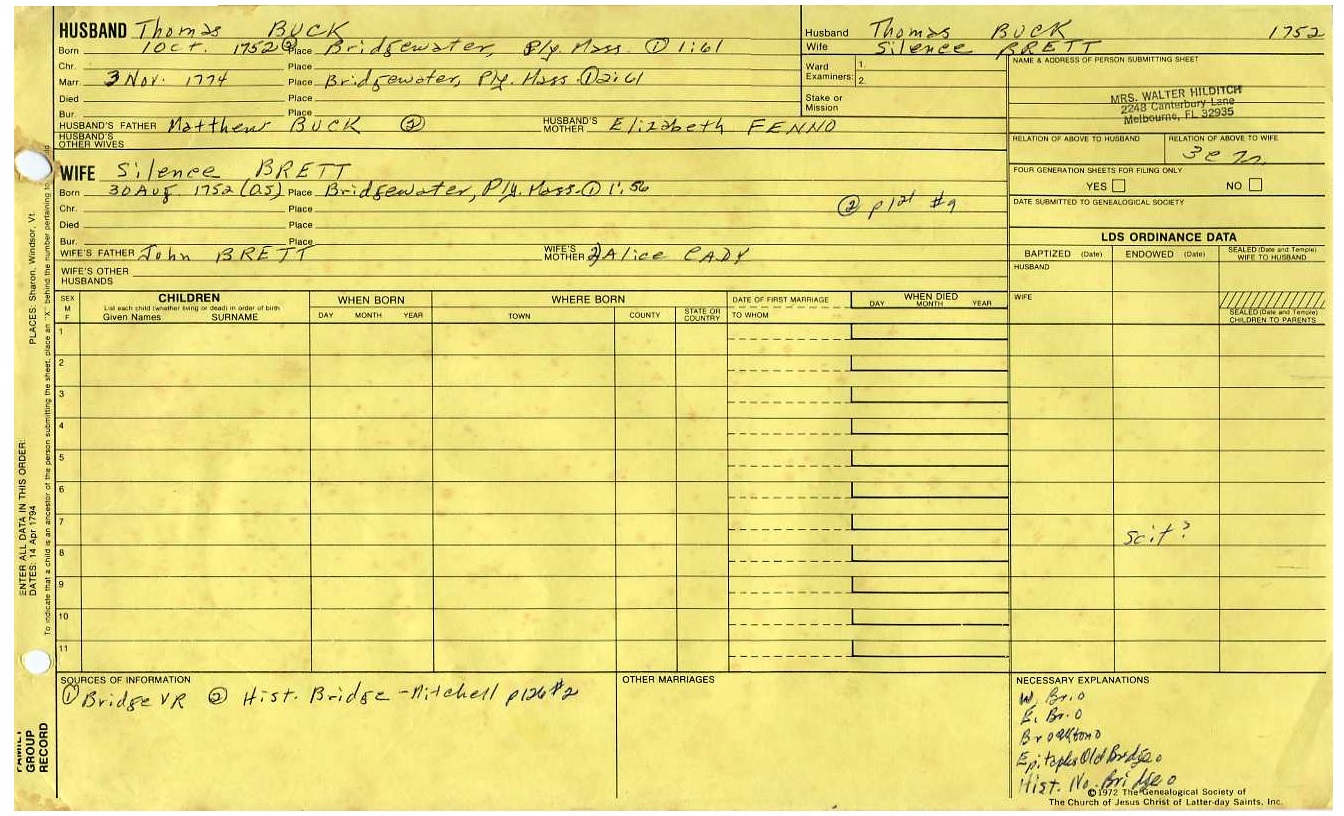 HUSBAND Thomas BUCK
Born 1 Oct. 1752 ② Place Bridgewater, Ply. Mass. ① 1:61
Chr. Place
Marr. 3 Nov. 1774 Place Bridgewater, Ply. Mass. ① 2:61
Died Place
Bur. Place
HUSBAND'S FATHER Matthew BUCK ② HUSBAND'S MOTHER Elizabeth FENNO
HUSBAND'S OTHER WIVES
WIFE Silence BRETT
Born 30 Aug. 1752 (OS) Place Bridgewater, Ply. Mass. ① 1:56
Chr. Place
② p121 #9
Died Place
Bur. Place
WIFE'S FATHER John BRETT WIFE'S MOTHER 2) Alice CADY
WIFE'S OTHER HUSBANDS
Husband Thomas BUCK 1752
Wife Silence BRETT
Ward Examiners: 1.
2.
Stake or Mission
NAME & ADDRESS OF PERSON SUBMITTING SHEET
MRS. WALTER HILDITCH
2248 Canterbury Lane
Melbourne, FL 32935
RELATION OF ABOVE TO HUSBAND RELATION OF ABOVE TO WIFE
FOUR GENERATION SHEETS FOR FILING ONLY
YES NO
DATE SUBMITTED TO GENEALOGICAL SOCIETY
LDS ORDINANCE DATA
BAPTIZED (Date) ENDOWED (Date) SEALED (Date and Temple) WIFE TO HUSBAND
HUSBAND
WIFE
SEALED (Date and Temple) CHILDREN TO PARENTS
SEX M F
CHILDREN
List each child (whether living or dead) in order of birth
Given Names SURNAME
WHEN BORN
DAY MONTH YEAR
WHERE BORN
TOWN COUNTY STATE OR COUNTRY
DATE OF FIRST MARRIAGE
TO WHOM
WHEN DIED
DAY MONTH YEAR
1
2
3
4
5
6
7
8
9
10
11
scit?
SOURCES OF INFORMATION
① Bridge VR ② Hist. Bridge - Mitchell p126 #2
OTHER MARRIAGES
NECESSARY EXPLANATIONS
W. Br. o
E. Br. o
Brockton o
Epitaphs Old Bridge o
Hist. No. Bridge o
©1972 The Genealogical Society of
The Church of Jesus Christ of Latter-day Saints, Inc.
ENTER ALL DATA IN THIS ORDER:
DATES: 14 Apr 1794 PLACES: Sharon, Windsor, Vt.
To indicate that a child is an ancestor of the person submitting the sheet, place an "X" behind the number pertaining to
FAMILY GROUP RECORD